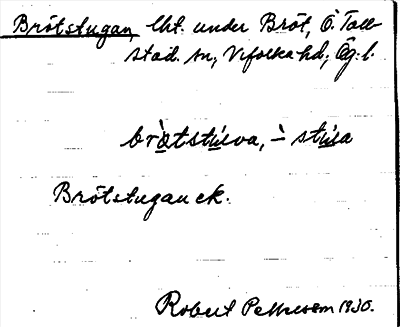 Brötstugan, lht. under Bröt, Ö. Toll-
stad sn, Vifolka hd, Ög. l.
Brötstugan ek.
Robert Pettersson 1930.